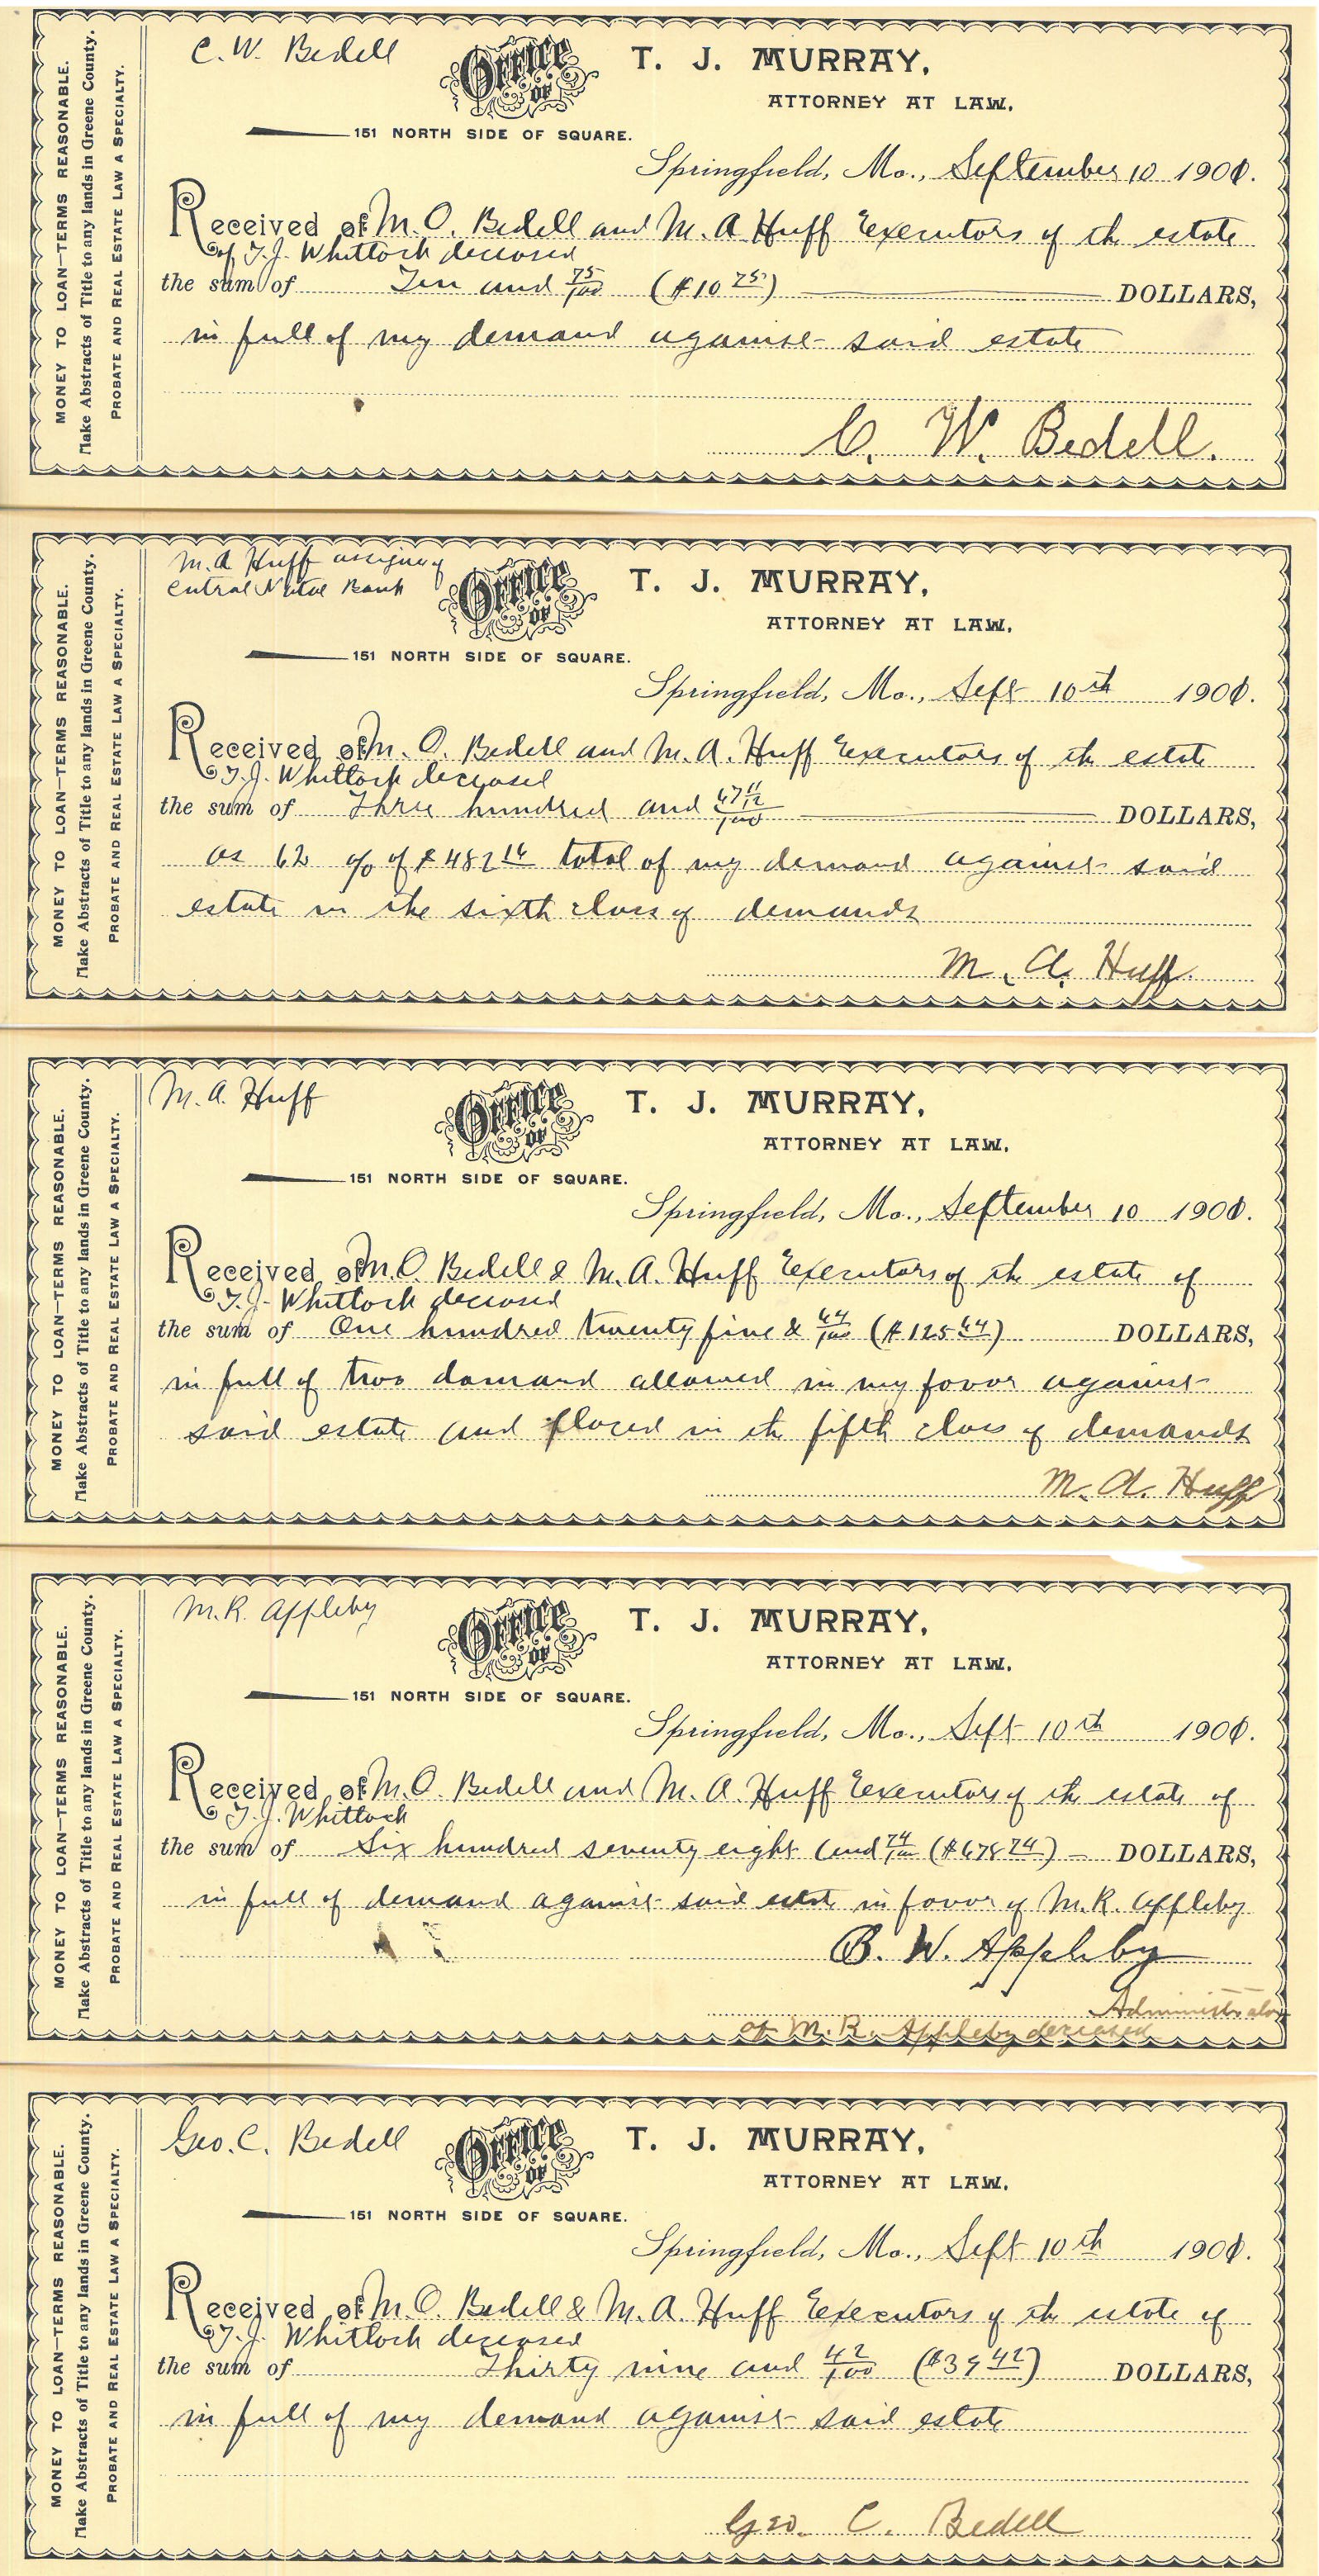 MONEY TO LOAN—TERMS REASONABLE.
Make Abstracts of Title to any lands in Greene County.
PROBATE AND REAL ESTATE LAW A SPECIALTY.
C. W. Bedell
OFFICE OF
T. J. MURRAY,
ATTORNEY AT LAW,
151 NORTH SIDE OF SQUARE.
Springfield, Mo., September 10 1900.
Received of M. O. Bedell and M. A Huff Executors of the estate
of T. J. Whitlock deceased
the sum of Ten and 75/100 ($10 75) DOLLARS,
in full of my demand against said estate
C. W. Bedell.
MONEY TO LOAN—TERMS REASONABLE.
Make Abstracts of Title to any lands in Greene County.
PROBATE AND REAL ESTATE LAW A SPECIALTY.
M. A Huff assignee of
Central Bank
OFFICE OF
T. J. MURRAY,
ATTORNEY AT LAW,
151 NORTH SIDE OF SQUARE.
Springfield, Mo., Sept 10th 1900.
Received of M. O. Bedell and M. A. Huff Executors of the estate
T. J. Whitlock deceased
the sum of Three hundred and DOLLARS,
as 62 % of $482 16 total of my demand against said
estate in the sixth class of demands
M. A. Huff.
MONEY TO LOAN—TERMS REASONABLE.
Make Abstracts of Title to any lands in Greene County.
PROBATE AND REAL ESTATE LAW A SPECIALTY.
M. A. Huff
OFFICE OF
T. J. MURRAY,
ATTORNEY AT LAW,
151 NORTH SIDE OF SQUARE.
Springfield, Mo., September 10 1900.
Received of M. O. Bedell & M. A. Huff Executors of the estate of
T. J. Whitlock deceased
the sum of One hundred twenty five & 64/100 ($125 64) DOLLARS,
in full of two demand allowed in my favor against
said estate and placed in the fifth class of demands
M. A. Huff
MONEY TO LOAN—TERMS REASONABLE.
Make Abstracts of Title to any lands in Greene County.
PROBATE AND REAL ESTATE LAW A SPECIALTY.
M. R. Appleby
OFFICE OF
T. J. MURRAY,
ATTORNEY AT LAW,
151 NORTH SIDE OF SQUARE.
Springfield, Mo., Sept 10th 1900.
Received of M. O. Bedell and M. A. Huff Executors of the estate of
T. J. Whitlock
the sum of Six hundred seventy eight and 74/100 ($678 74) DOLLARS,
in full of demand against said estate in favor of M. R. Appleby
B. W. Appleby
Administrator
of M. R. Appleby deceased
MONEY TO LOAN—TERMS REASONABLE.
Make Abstracts of Title to any lands in Greene County.
PROBATE AND REAL ESTATE LAW A SPECIALTY.
Geo. C. Bedell
OFFICE OF
T. J. MURRAY,
ATTORNEY AT LAW,
151 NORTH SIDE OF SQUARE.
Springfield, Mo., Sept 10th 1900.
Received of M. O. Bedell & M. A. Huff Executors of the estate of
T. J. Whitlock deceased
the sum of Thirty nine and 42/100 ($39 42) DOLLARS,
in full of my demand against said estate
Geo. C. Bedell